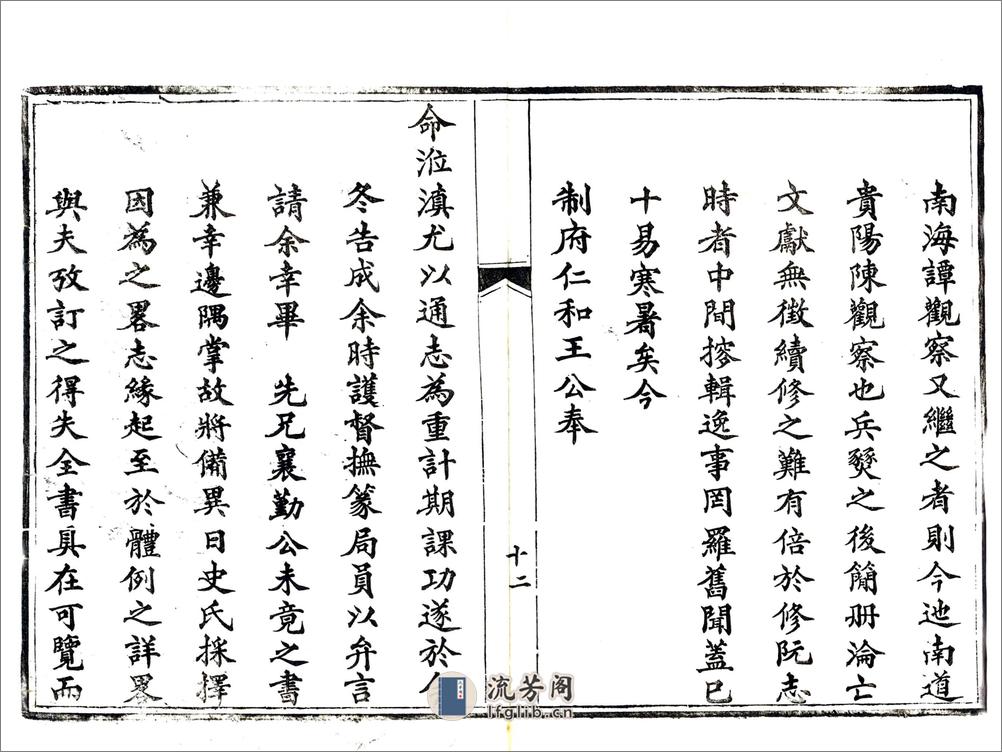 南海譚觀察又繼之者則今迆南道
貴陽陳觀察也兵燹之後簡册淪亡
文獻無徵續修之難有倍於修阮志
時者中間搜輯逸事罔羅舊聞蓋已
十易寒暑矣今
制府仁和王公奉
十二
命涖滇尤以通志為重計期課功遂於今
冬告成余時護督撫篆局員以弁言
請余幸畢 先兄襄勤公未竟之書
兼幸邊隅掌故將備異日史氏採擇
因為之畧志緣起至於體例之詳畧
與夫攷訂之得失全書具在可覽而
流芳阁
lfglib.cn